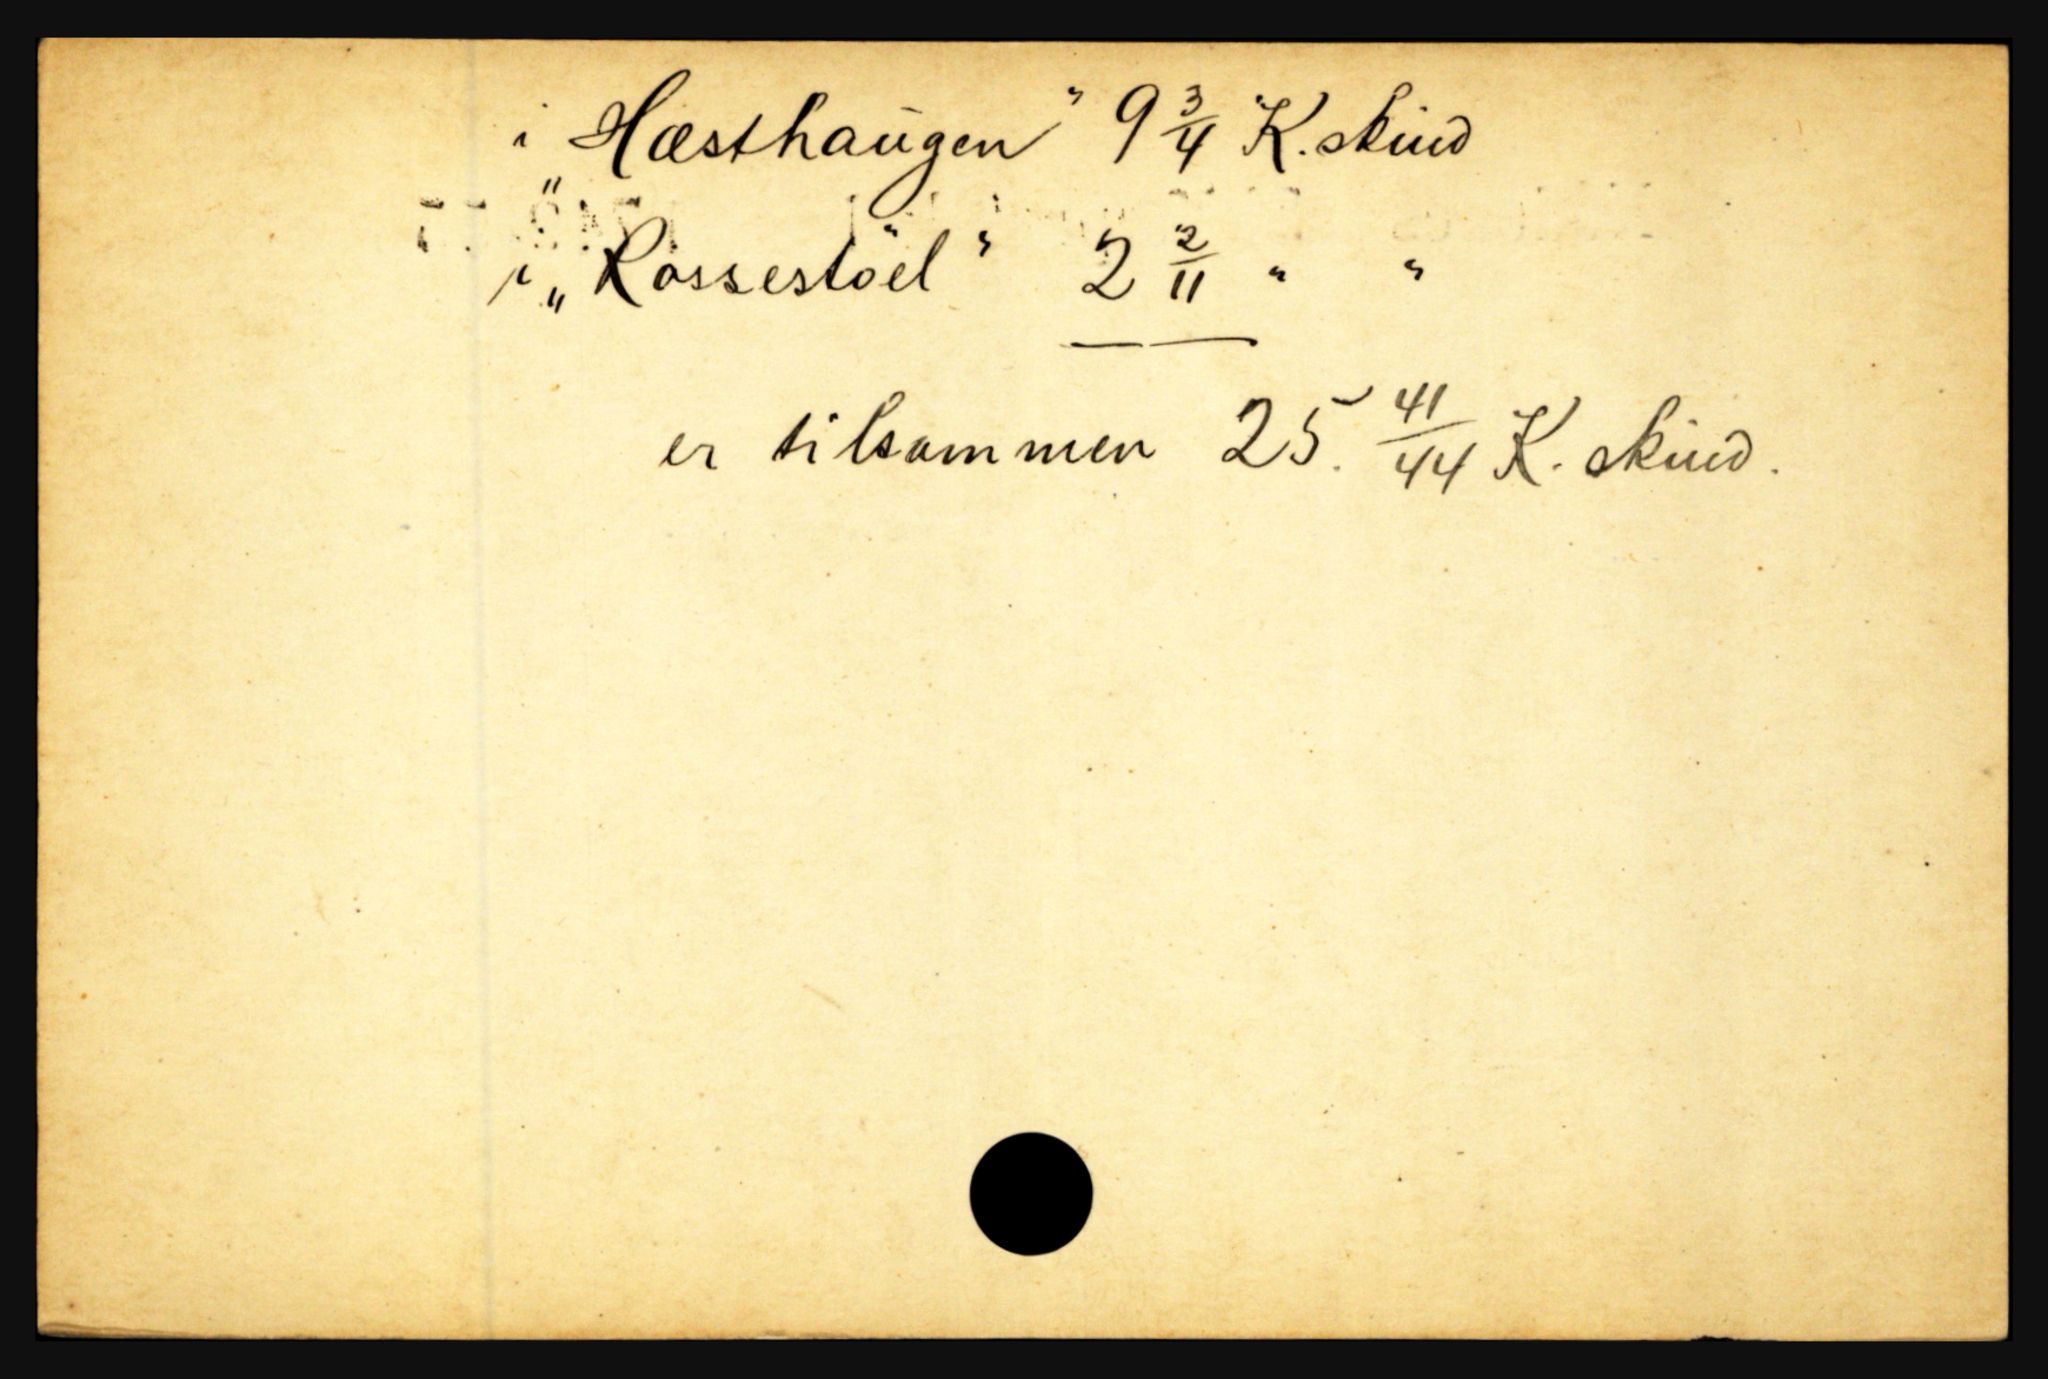 i Hæsthaugen" 9 3/4 K. skind
"
i „Rossestöel" 2 2/11 " "
er tilsammen 25. 41/44 K. skind.